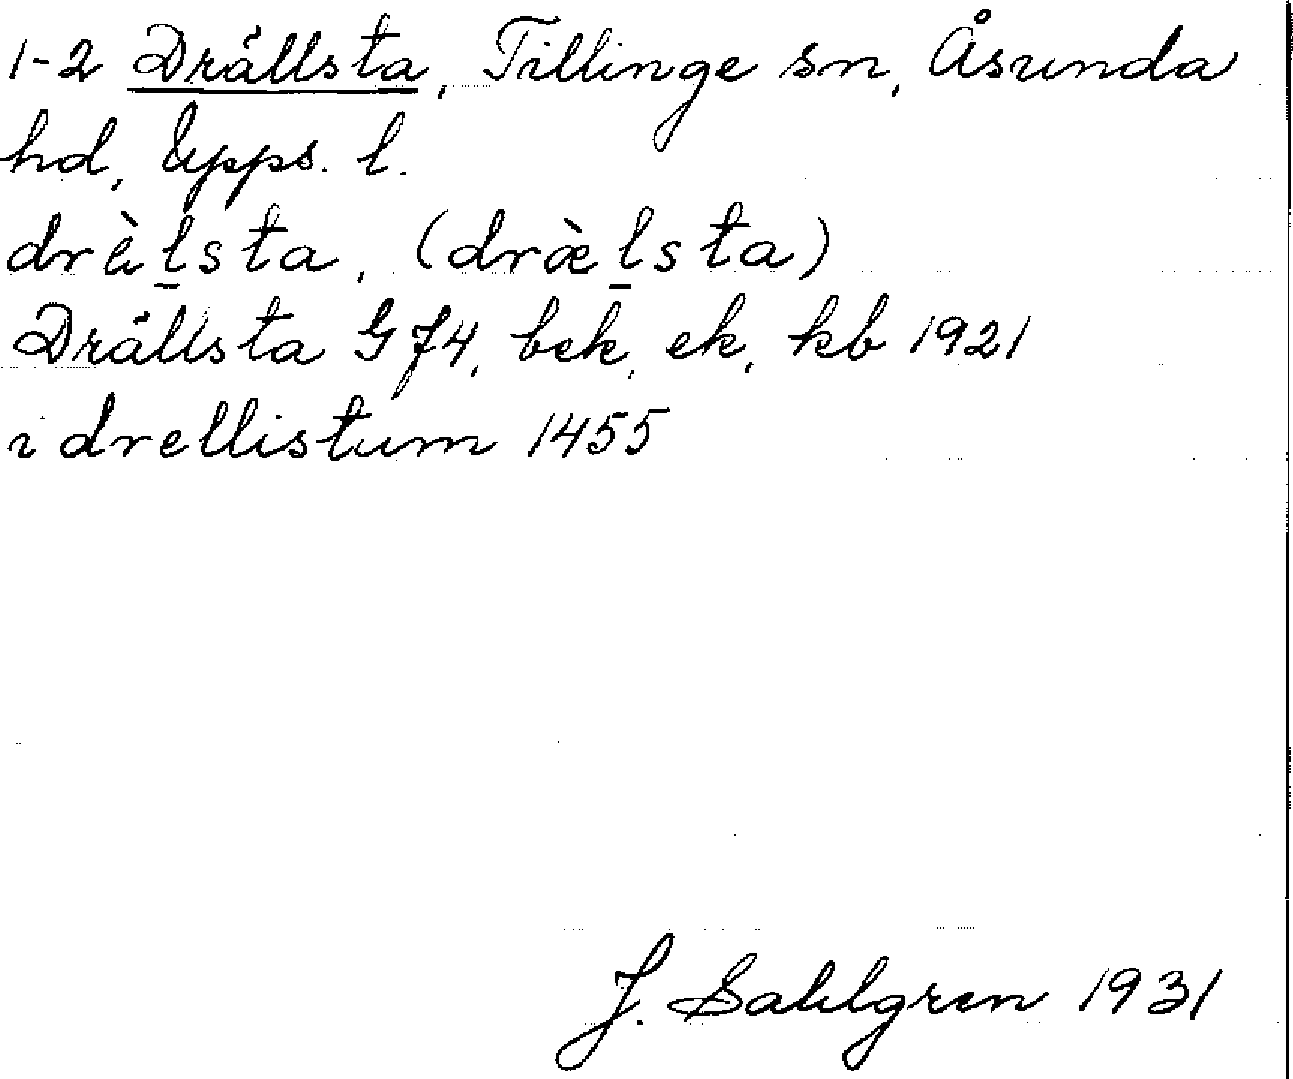 1-2 Drällsta, Tillinge sn, Åsunda
hd, Upps. l.
drὰl̲sta, (dræ̀l̲sta)
Drällsta GJ4, bek, ek, kb 1921
i drellistum 1455
J. Sahlgren 1931